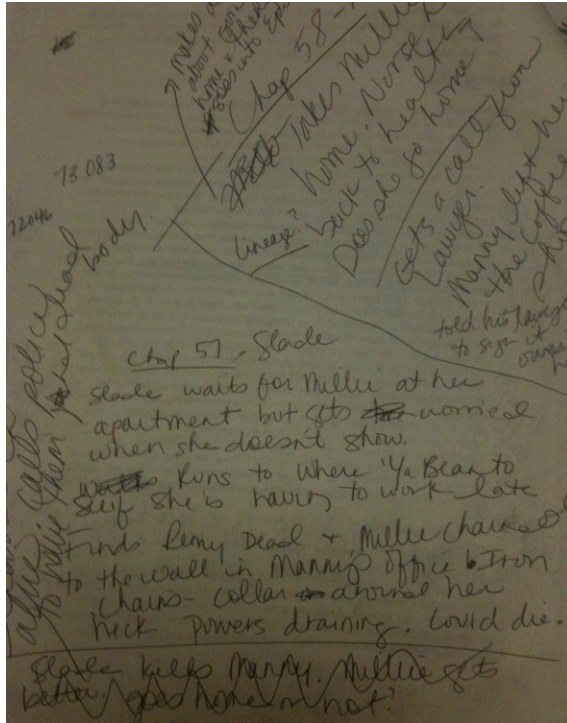 makes a
about going
home & then
goes into Epi
Chap 58 -
takes Millie
home. Nurse h
back to health
Does she go home?
lineage?
Gets a call from
Lawyer.
Manny left her
the coffee
told his lawyer
to sign it
73083
72046
body.
calls police
to have them
Chap 57, - Slade
Slade waits for Millie at her
apartment but gets worried
when she doesn't show.
Runs to Where 'Ya Bean to
see if she is having to work late
Finds Remy Dead & Millie chained
to the wall in Manny's office. Iron
Chains - collar around her
neck powers draining. Could die.
Slade kills Manny. Millie gets
better. goes home or not?